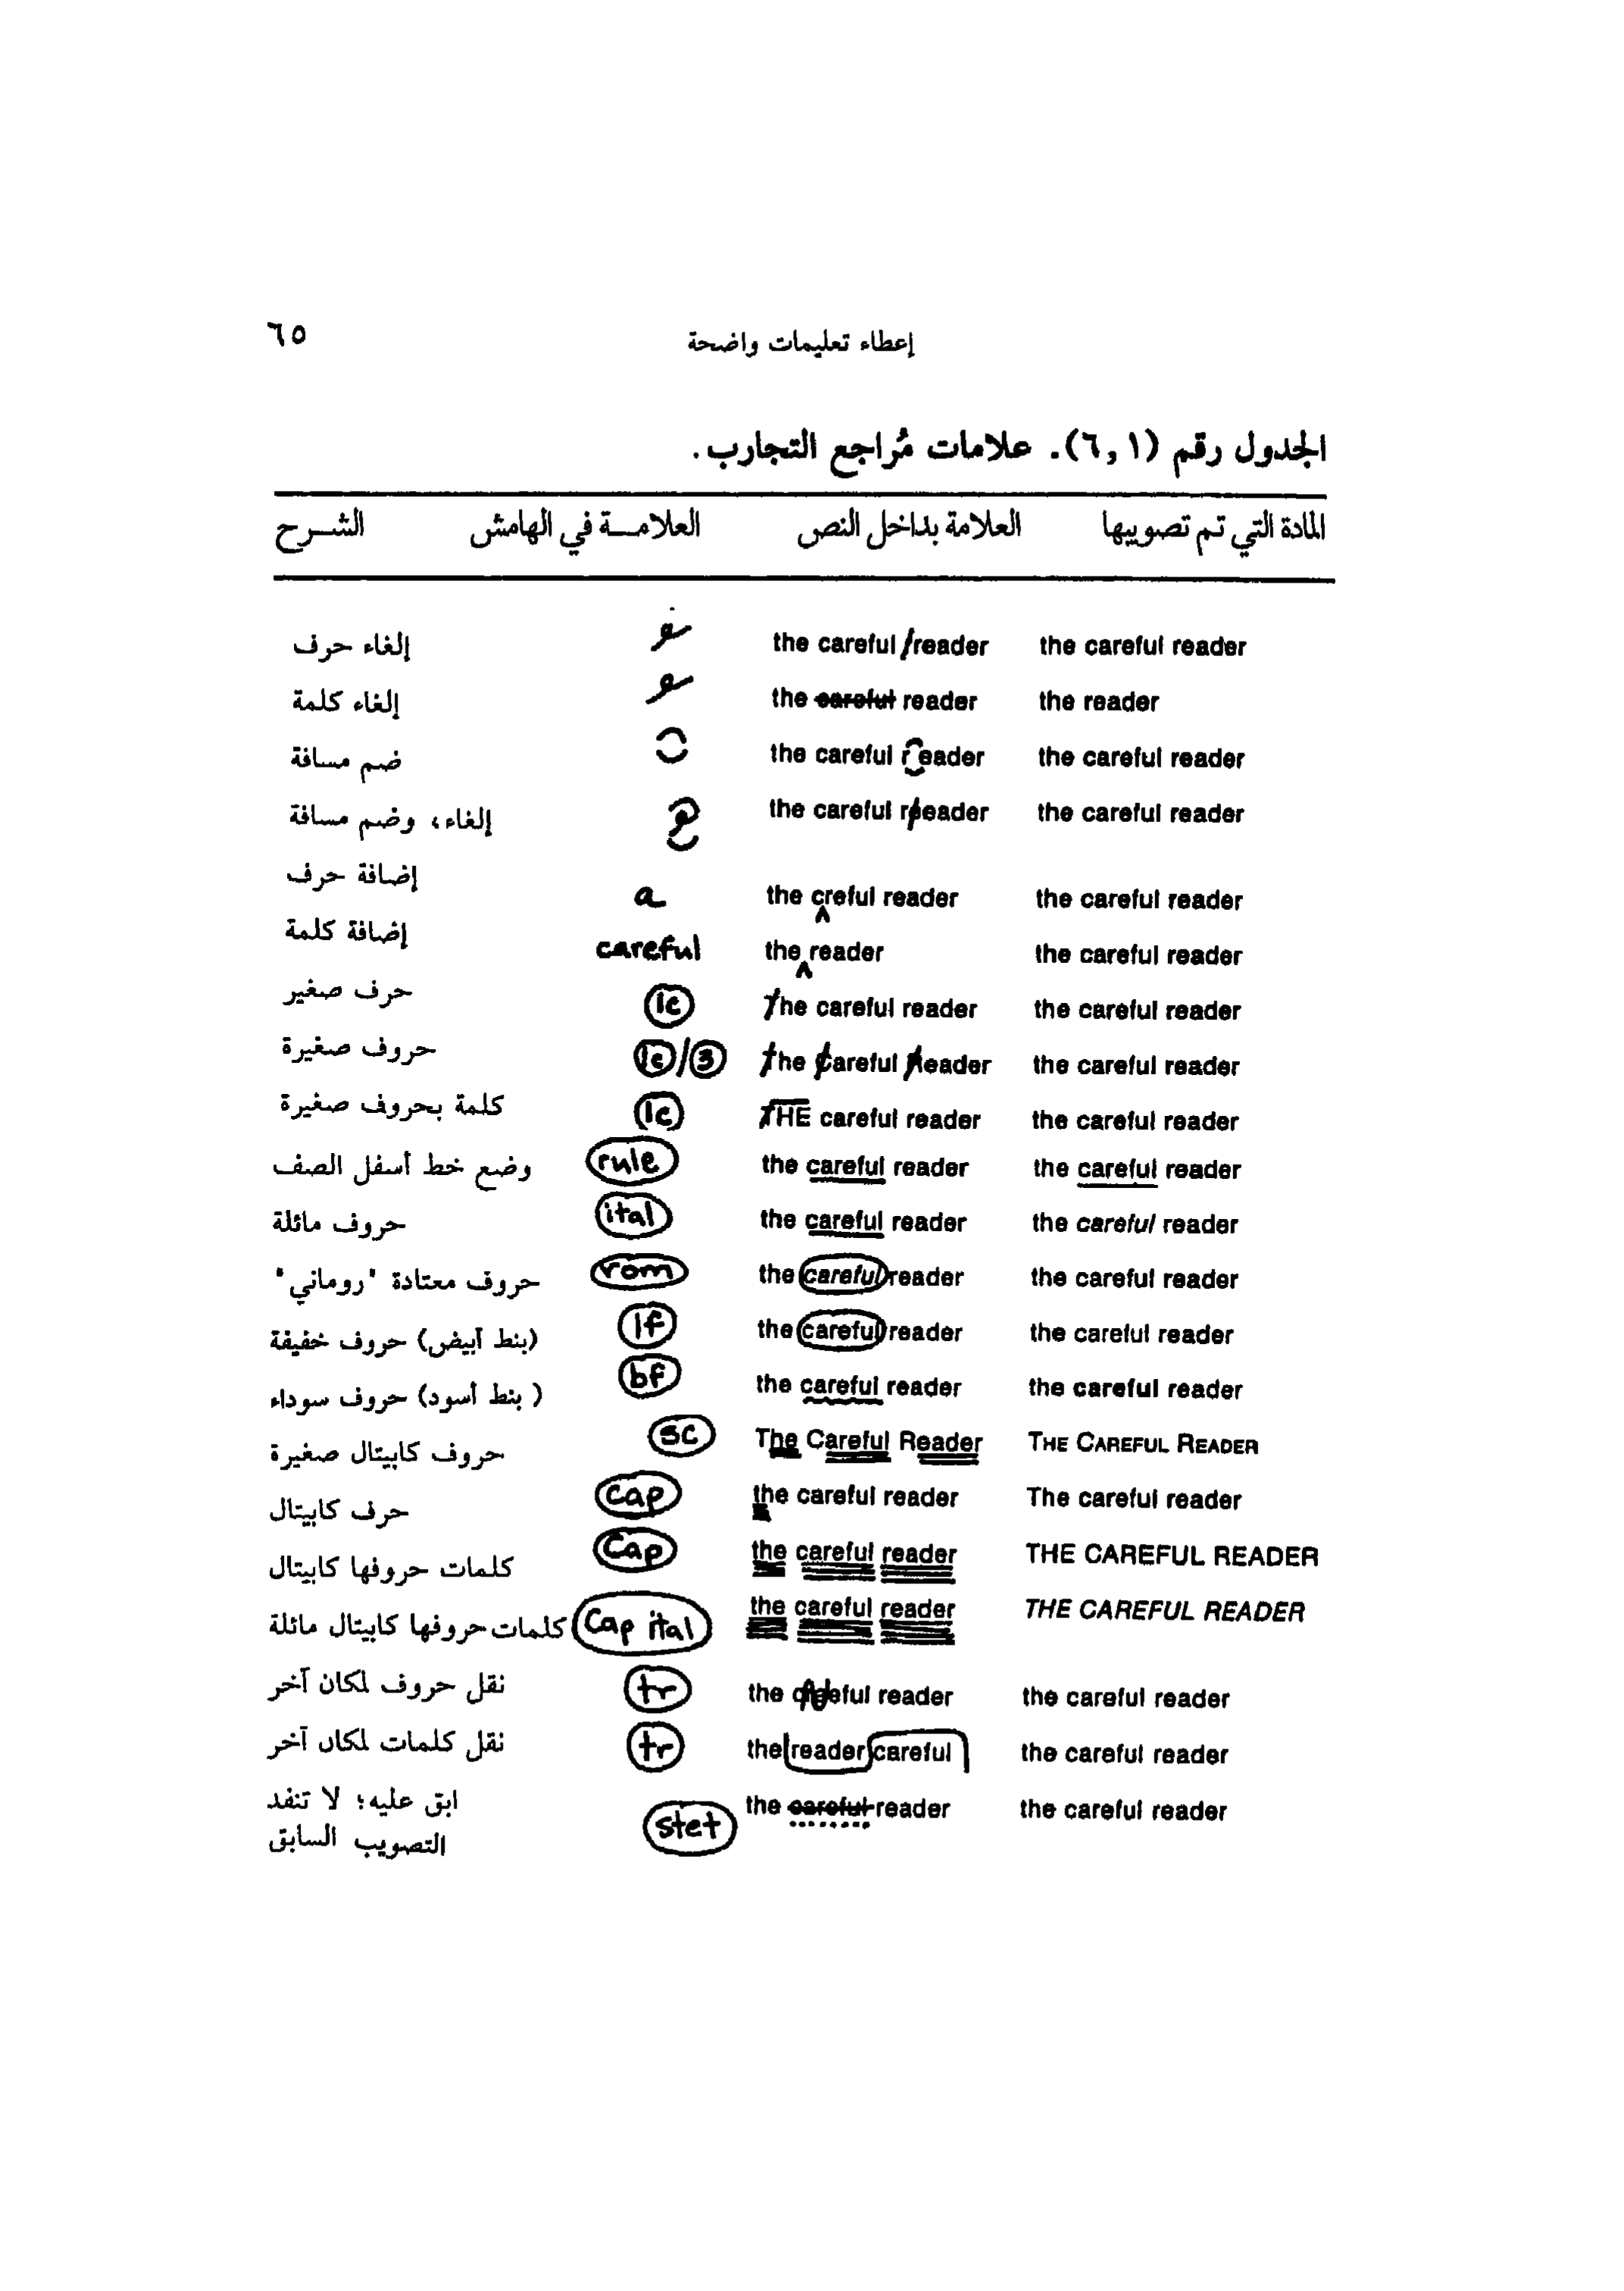 إعطاء تعليمات واضحة ٦٥
الجدول رقم (٦,١). علامات مُراجع التجارب.
المادة التي تم تصويبها العلامة بداخل النص العلامـــة في الهامش الشـــرح
the careful reader the careful /reader إلغاء حرف
the reader the careful reader إلغاء كلمة
the careful reader the careful r eader ضم مسافة
the careful reader the careful r/eader إلغاء، وضم مسافة
the careful reader the creful reader a إضافة حرف
the careful reader the reader careful إضافة كلمة
the careful reader The careful reader lc حرف صغير
the careful reader The Careful Reader lc/3 حروف صغيرة
the careful reader THE careful reader lc كلمة بحروف صغيرة
the careful reader the careful reader rule وضع خط أسفل الصف
the careful reader the careful reader ital حروف مائلة
the careful reader the careful reader rom حروف معتادة "روماني"
the careful reader the careful reader lf (بنط أبيض) حروف خفيفة
the careful reader the careful reader bf ( بنط أسود) حروف سوداء
THE CAREFUL READER The Careful Reader sc حروف كابيتال صغيرة
The careful reader the careful reader cap حرف كابيتال
THE CAREFUL READER the careful reader Cap كلمات حروفها كابيتال
THE CAREFUL READER the careful reader Cap ital كلمات حروفها كابيتال مائلة
the careful reader the eful reader tr نقل حروف لمكان آخر
the careful reader the reader careful tr نقل كلمات لمكان آخر
the careful reader the careful reader stet ابق عليه؛ لا تنفد
التصويب السابق